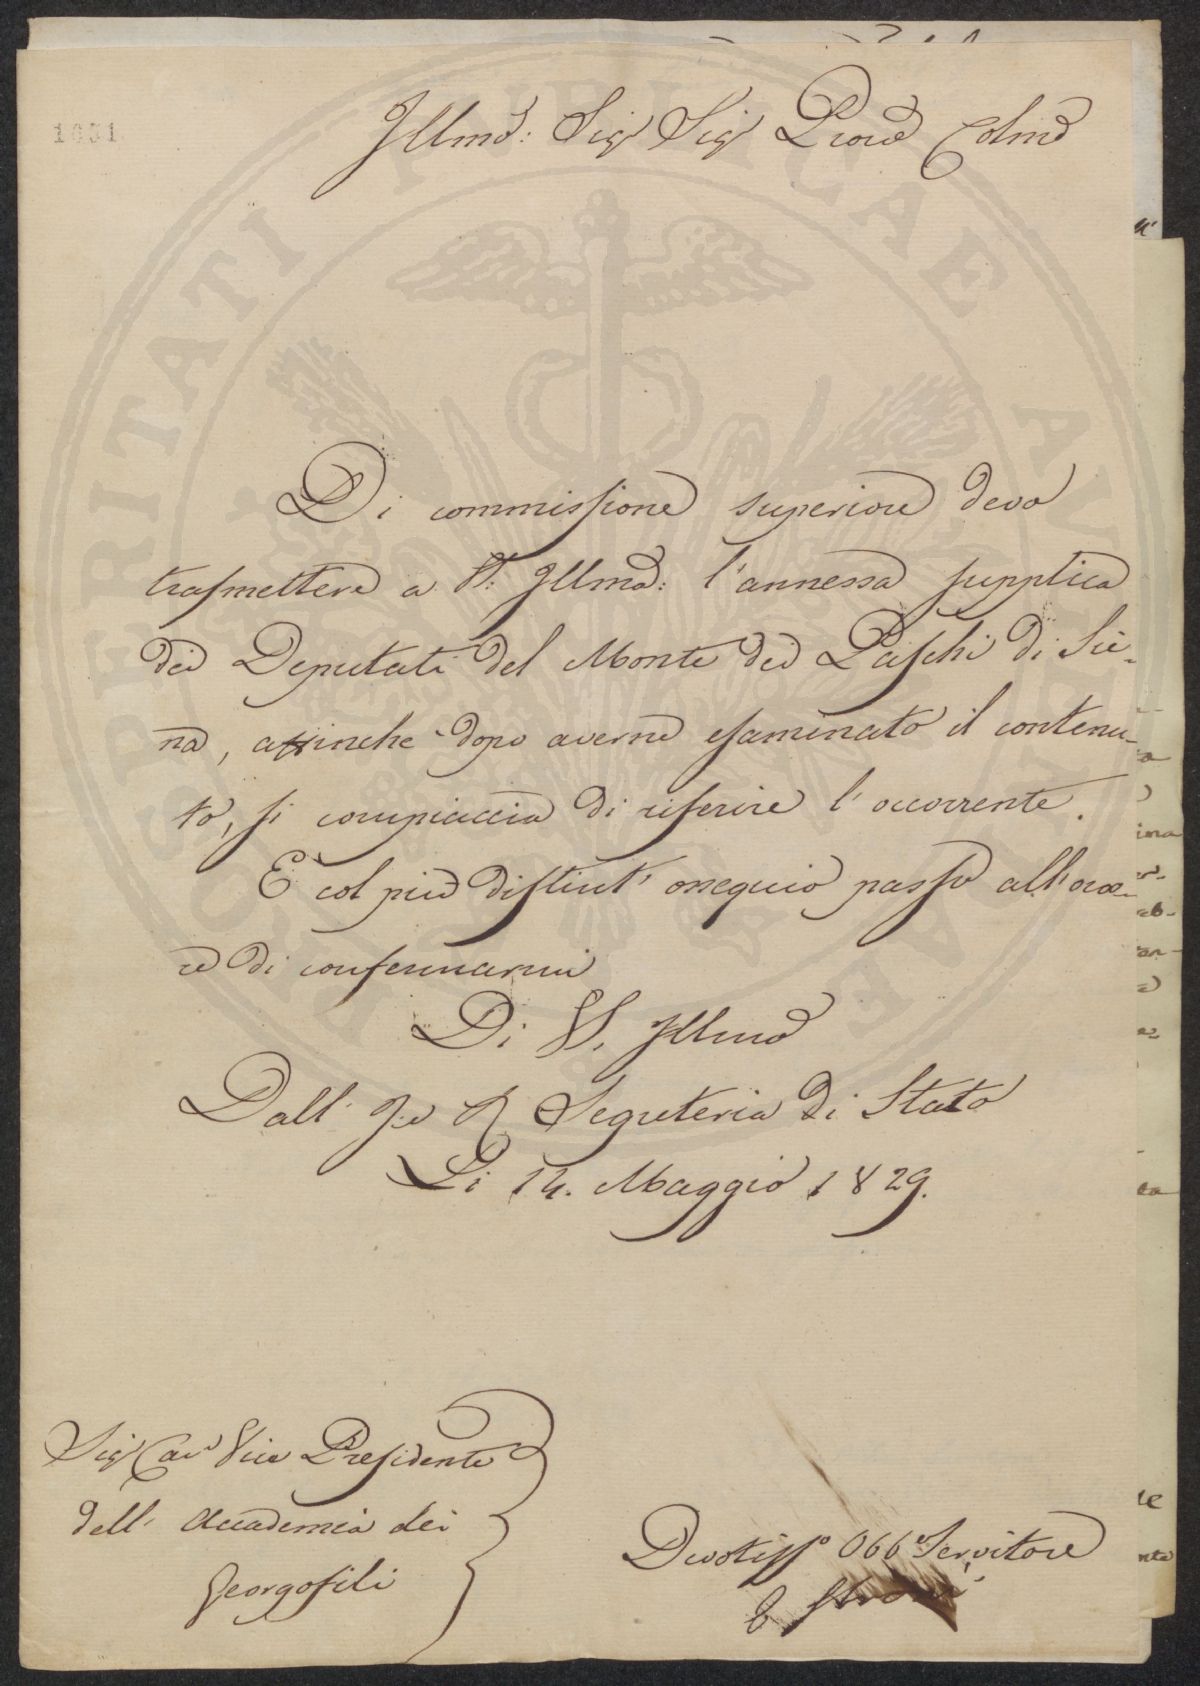 1031.
Illmo: Sigr Sigr Prone Colmo
Di commissione superiore devo
trasmettere a V.: Illma: l'annessa supplica
dei Deputati del Monte dei Paschi di Sie-
na, affinchè dopo averne esaminato il contenu-
to, si compiaccia di riferire l'occorrente.
E col più distint' ossequio passo all'ono-
re di confermarmi
Di V. Illma
Dall' I. e R. Segreteria di Stato
Li 14. Maggio 1829.
Sigr Cavr Vice Presidente
dell' Accademia dei
Georgofili
Devotisso Obbo Servitore
PROSPERITATI PUBLICAE AUGENDAE